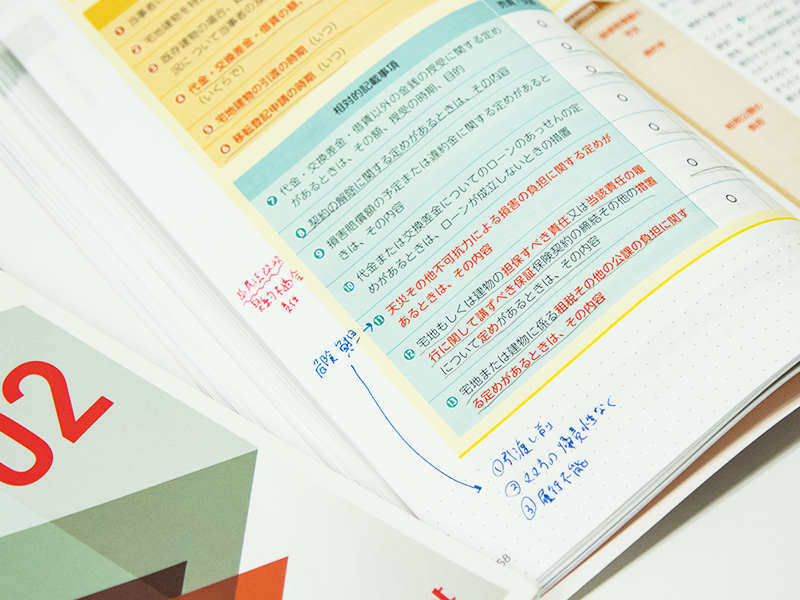 当事者
宅地建物を特
既存建物の場合、
況について当事者の
❹ 代金・交換差金・借賃の額、
(いくらで) (いつ)
❺ 宅地建物の引渡の時期(いつ)
❻ 移転登記申請の時期(いつ)
相対的記載事項
❼ 代金・交換差金・借賃以外の金銭の授受に関する定め
があるときは、その額、授受の時期、目的
❽ 契約の解除に関する定めがあるときは、その内容
❾ 損害賠償額の予定または違約金に関する定めがあると
きは、その内容
❿ 代金または交換差金についてのローンのあっせんの定
めがあるときは、ローンが成立しないときの措置
⓫ 天災その他不可抗力による損害の負担に関する定めが
あるときは、その内容
⓬ 宅地もしくは建物の担保すべき責任又は当該責任の履
行に関して講ずべき保証保険契約の締結その他の措置
について定めがあるときは、その内容
⓭ 宅地または建物に係る租税その他の公課の負担に関す
る定めがあるときは、その内容
責任
危険負担
①引渡し前
②双方の帰責性なく
③履行不能
58
02